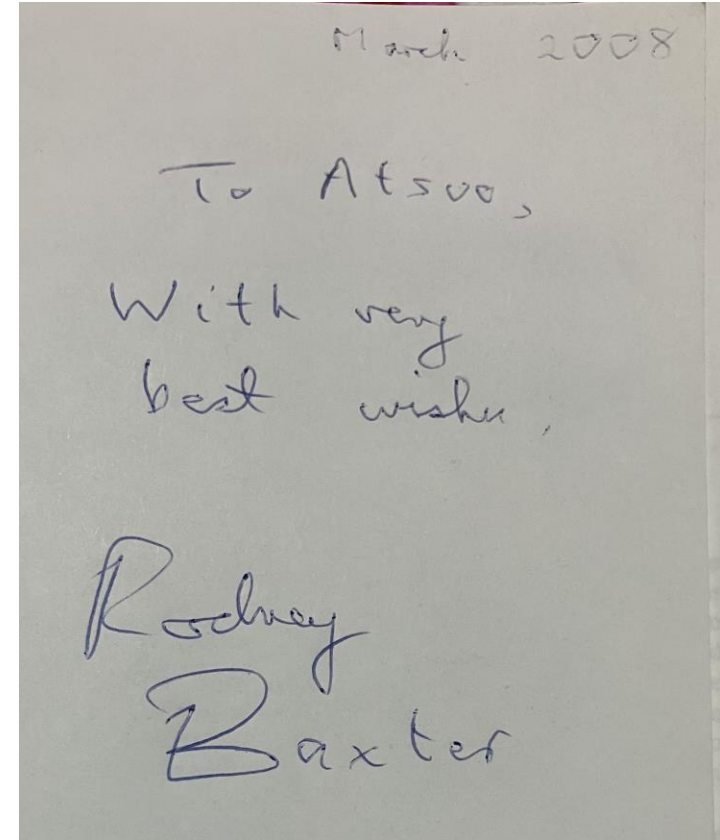 March 2008
To Atsuo,
With very
best wishes,
Rodney
Baxter